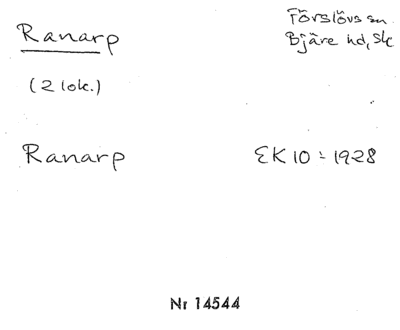 Ranarp
Förslövs sn
Bjäre hd, Sk
(2 lok.)
Ranarp EK 10 : 1928
Nr 14544